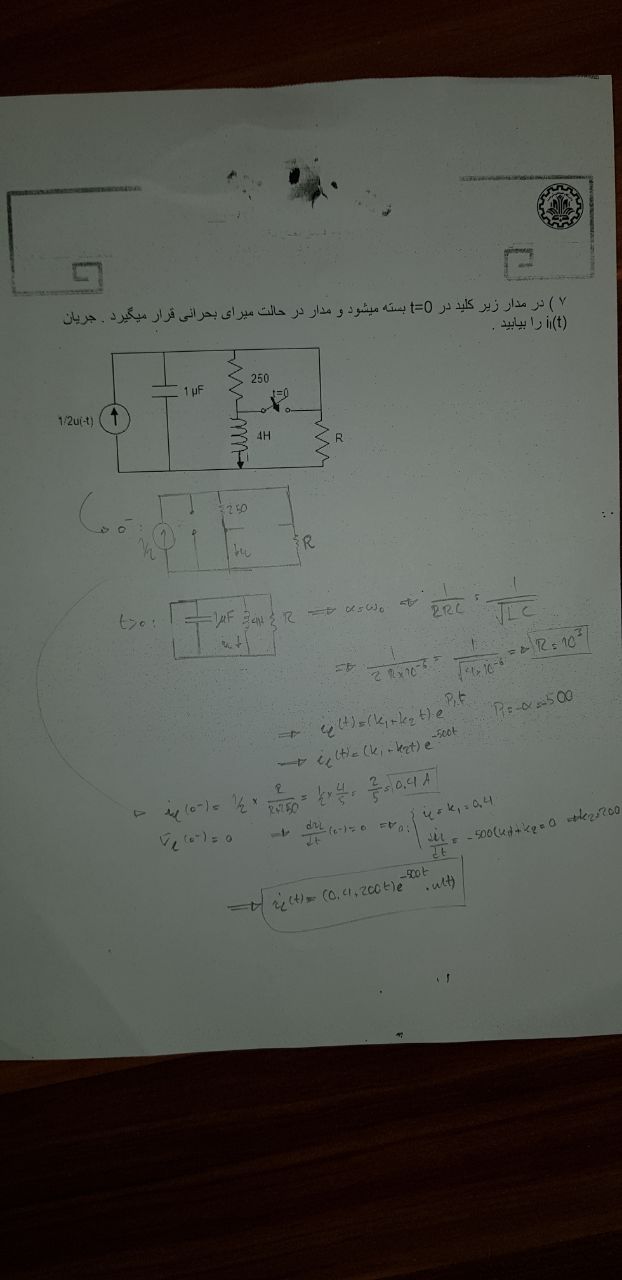 ۷ ) در مدار زیر کلید در t=0 بسته میشود و مدار در حالت میرای بحرانی قرار میگیرد . جریان
iₗ(t) را بیابید .
1/2u(-t)
1 µF
250
t=0
4H
R
0⁻:
1/2
250
R
t>0:
1µF
4H
R ⟹ α=ω₀ ⟹ 1/2RC = 1/√LC
⟹ 1/(2R×10⁻⁶) = 1/√(4×10⁻⁶) ⟹ R=10³
⟹ i_L(t)=(k₁+k₂t)e^{P₁t} P₁=-α=-500
⟹ i_L(t)=(k₁+k₂t)e^{-500t}
i_L(0⁻)= 1/2 × R/(R+250) = 1/2 × 4/5 = 2/5 = 0.4 A
V_L(0⁻)=0 ⟹ di_L/dt (0⁻)=0 ⟹ 0: { i_L=k₁=0.4
di_L/dt = -500(k₁)+k₂=0 ⟹ k₂=200
⟹ i_L(t)=(0.4+200t)e^{-500t}.u(t)